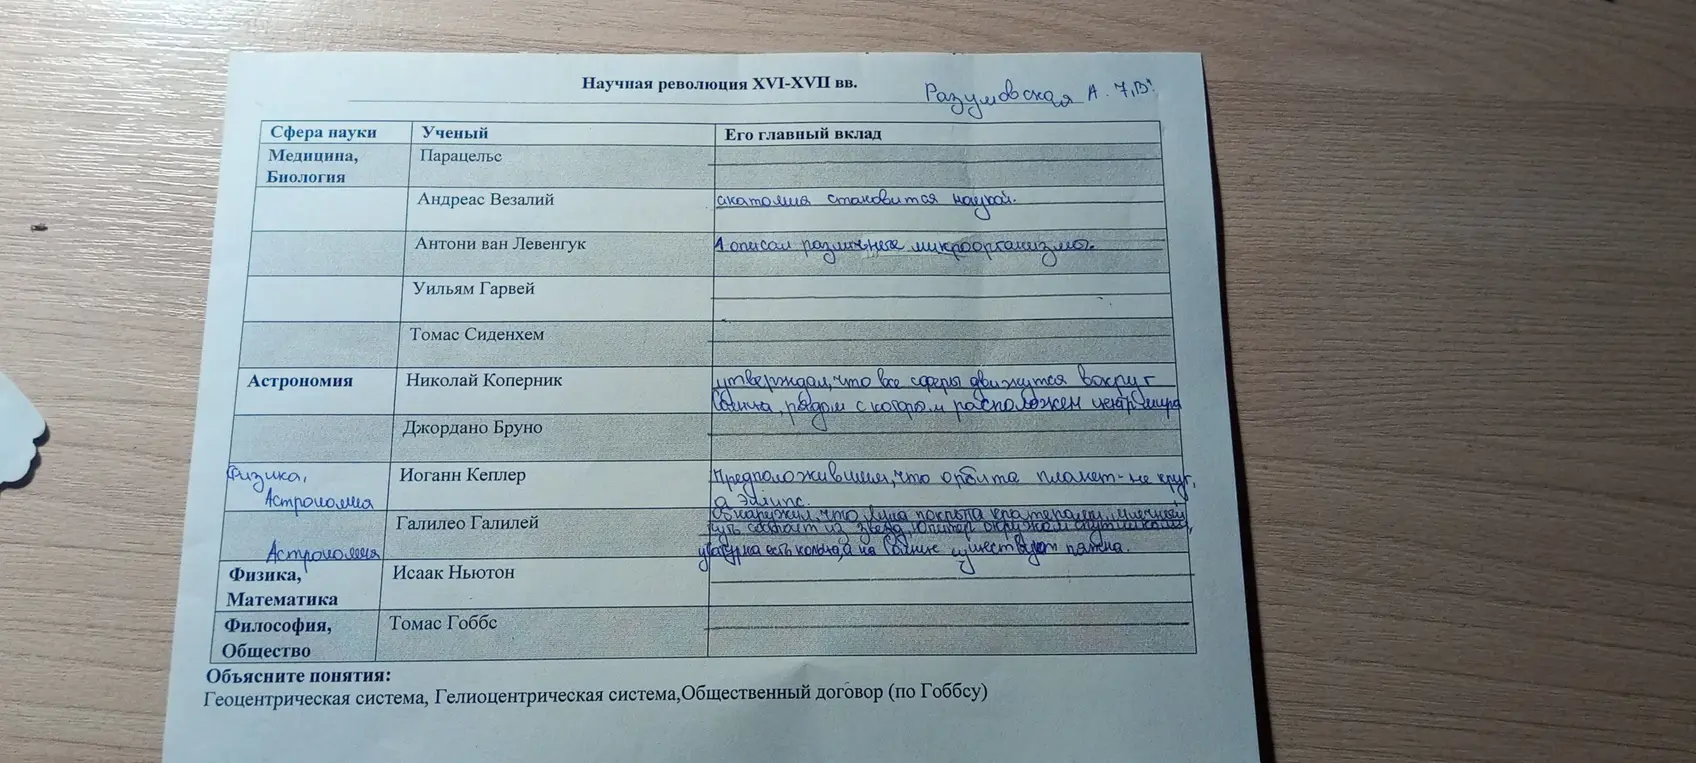 Научная революция XVI-XVII вв.
Разумовская А. 7,В!
Сфера науки Ученый Его главный вклад
Медицина, Парацельс
Биология
Андреас Везалий анатомия становится наукой.
Антони ван Левенгук описал различные микроорганизмы.
Уильям Гарвей
Томас Сиденхем
Астрономия Николай Коперник утверждал, что все сферы движутся вокруг
Солнца, рядом с которым расположен центр мира
Джордано Бруно
Физика, Иоганн Кеплер Предположившим, что орбита планет - не круг,
Астрономия а Эллипс.
Галилео Галилей Обнаружил, что Луна покрыта кратерами, млечный
путь состоит из звезд, Юпитер окружен спутниками,
Астрономия у Сатурна есть кольца, а на Солнце существуют пятна.
Физика, Исаак Ньютон
Математика
Философия, Томас Гоббс
Общество
Объясните понятия:
Геоцентрическая система, Гелиоцентрическая система,Общественный договор (по Гоббсу)